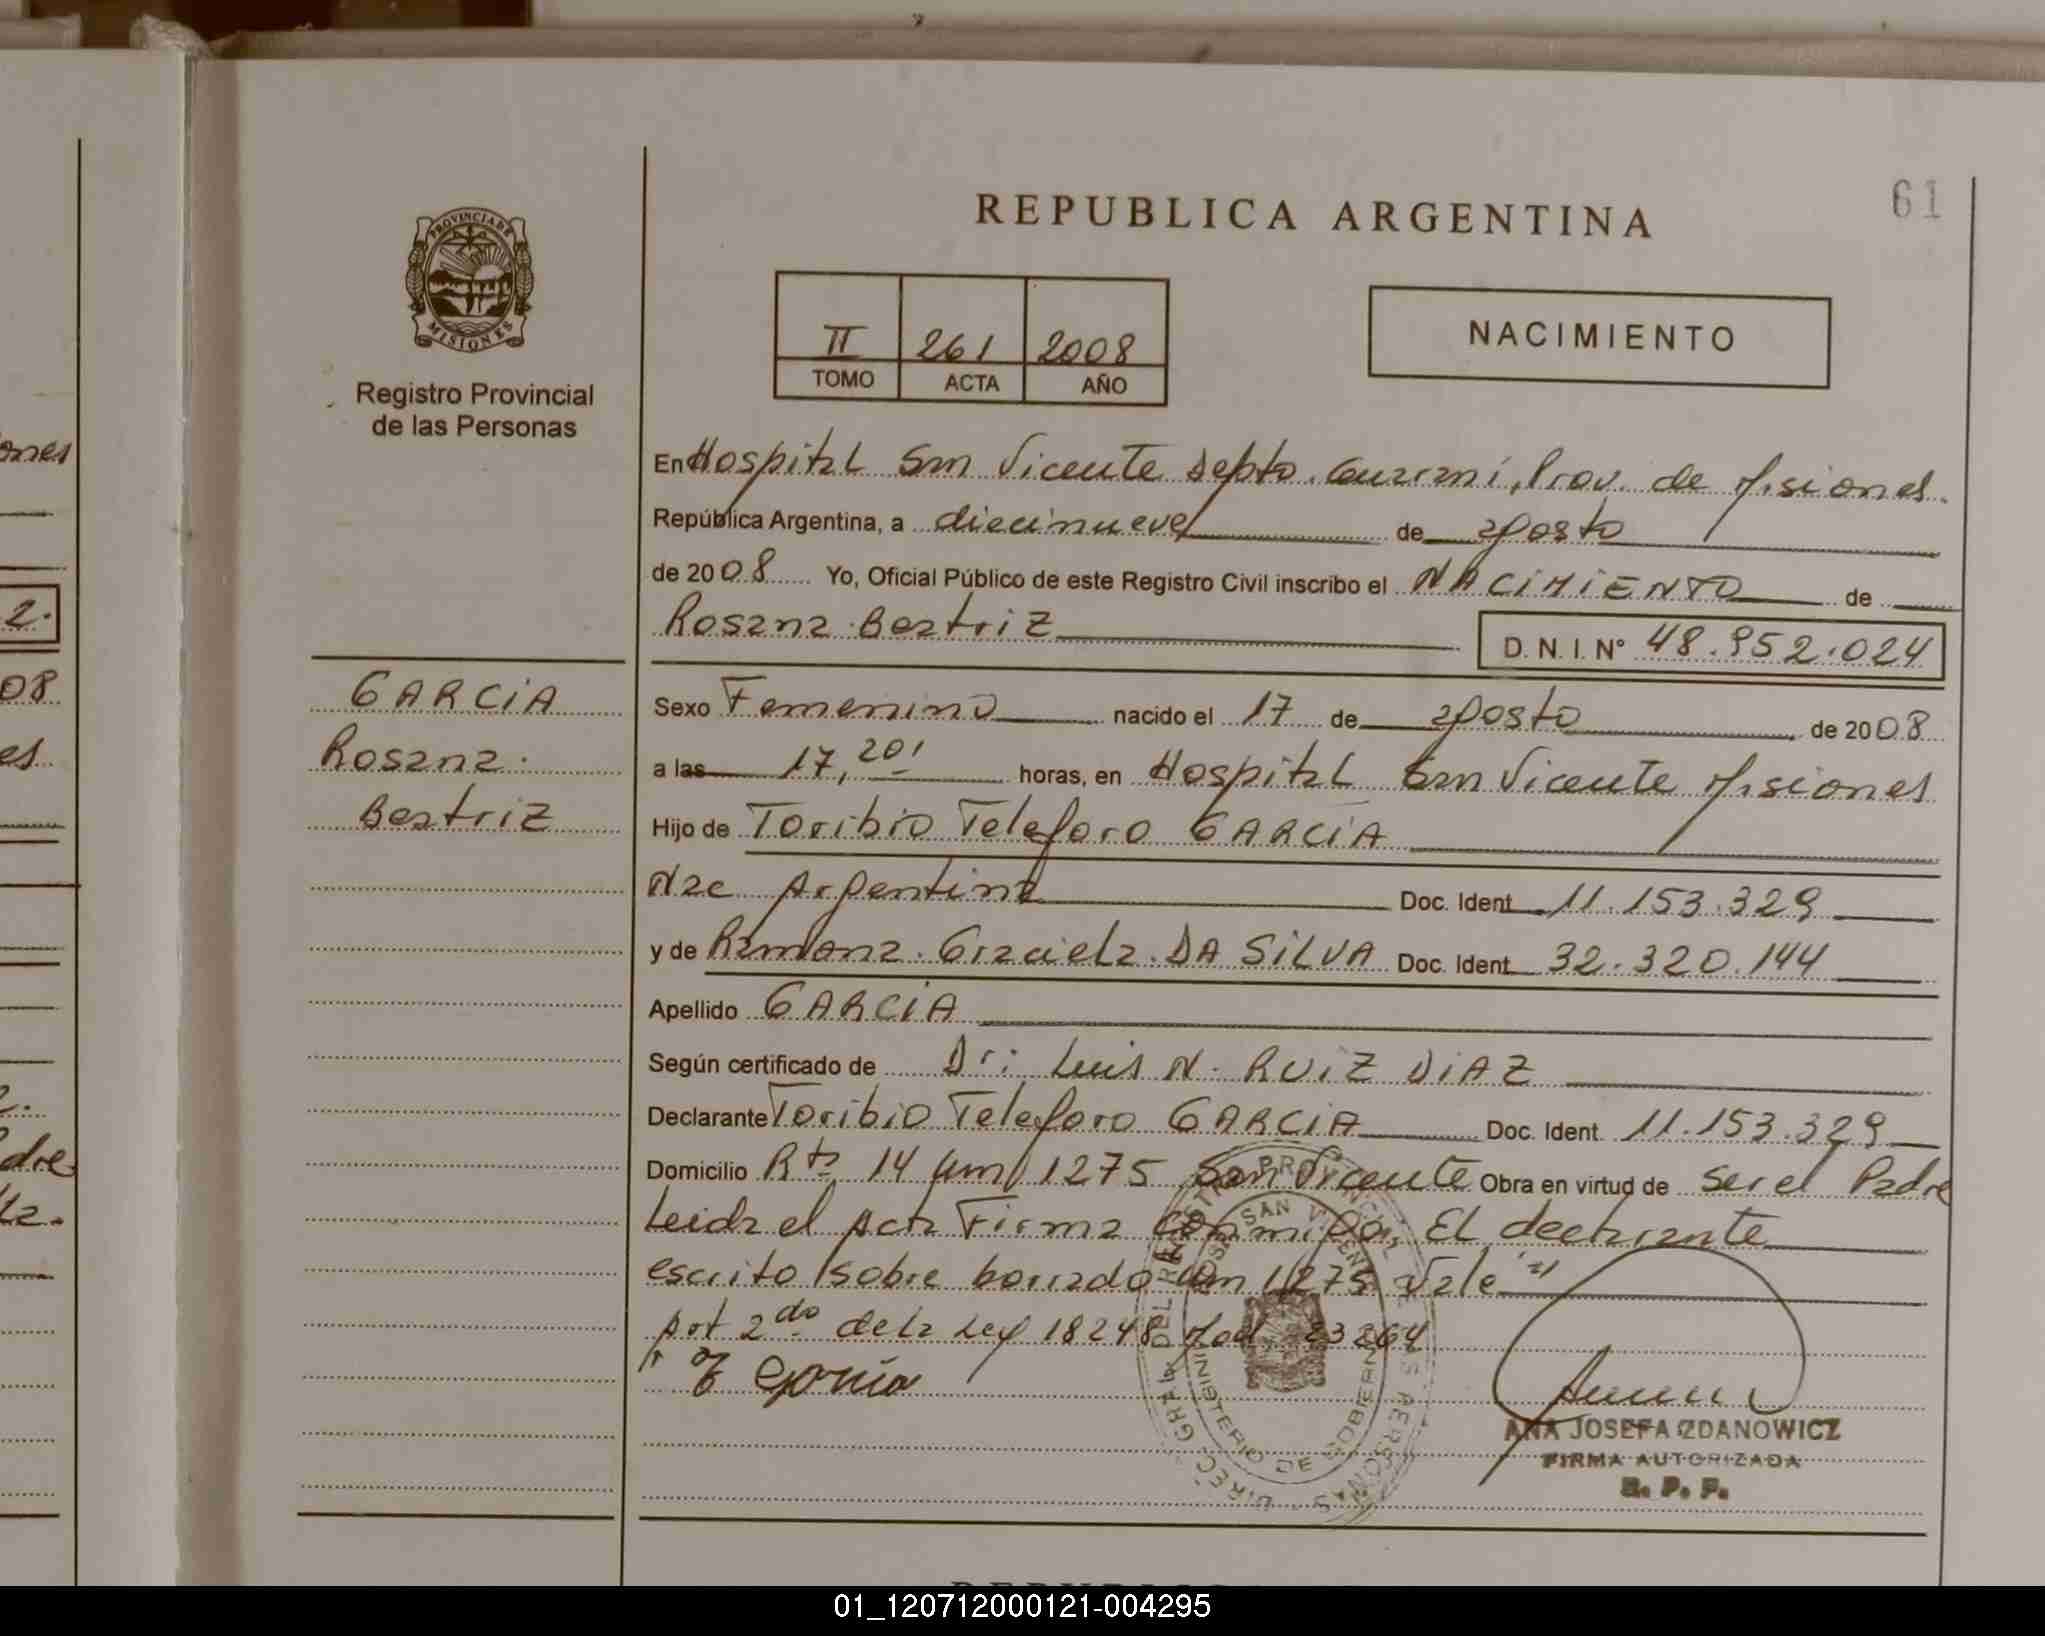 61
REPUBLICA ARGENTINA
PROVINCIA DE MISIONES
Registro Provincial
de las Personas
II 261 2008
TOMO ACTA AÑO
NACIMIENTO
En Hospital San Vicente Depto. Guaraní, Prov. de Misiones.
República Argentina, a diecinueve de agosto
de 2008 Yo, Oficial Público de este Registro Civil inscribo el NACIMIENTO de
Rosana Beatriz D. N. I. N° 48.952.024
GARCIA
Rosana
Beatriz
Sexo Femenino nacido el 17 de agosto de 2008
a las 17,20' horas, en Hospital San Vicente Misiones
Hijo de Toribio Teleforo GARCIA
Nac Argentina Doc. Ident 11.153.329
y de Ramona Graciela DA SILVA Doc. Ident 32.320.144
Apellido GARCIA
Según certificado de Dr: Luis N. RUIZ DIAZ
Declarante Toribio Teleforo GARCIA Doc. Ident. 11.153.329
Domicilio Rta 14 Km 1275 San Vicente Obra en virtud de ser el Padre
Leida el Acta Firma conmigo, El declarante
escrito sobre borrado Km 1275 Vale"
Art 2do de la Ley 18248 Mod. 23264
T Garcia
DIREC. GRAL. DEL REGISTRO PROVINCIAL DE LAS PERSONAS
SAN VICENTE
MINISTERIO DE GOBIERNO
ANA JOSEFA ZDANOWICZ
FIRMA AUTORIZADA
R. P. P.
ones
2.
08
es
2.
Padre
01_120712000121-004295